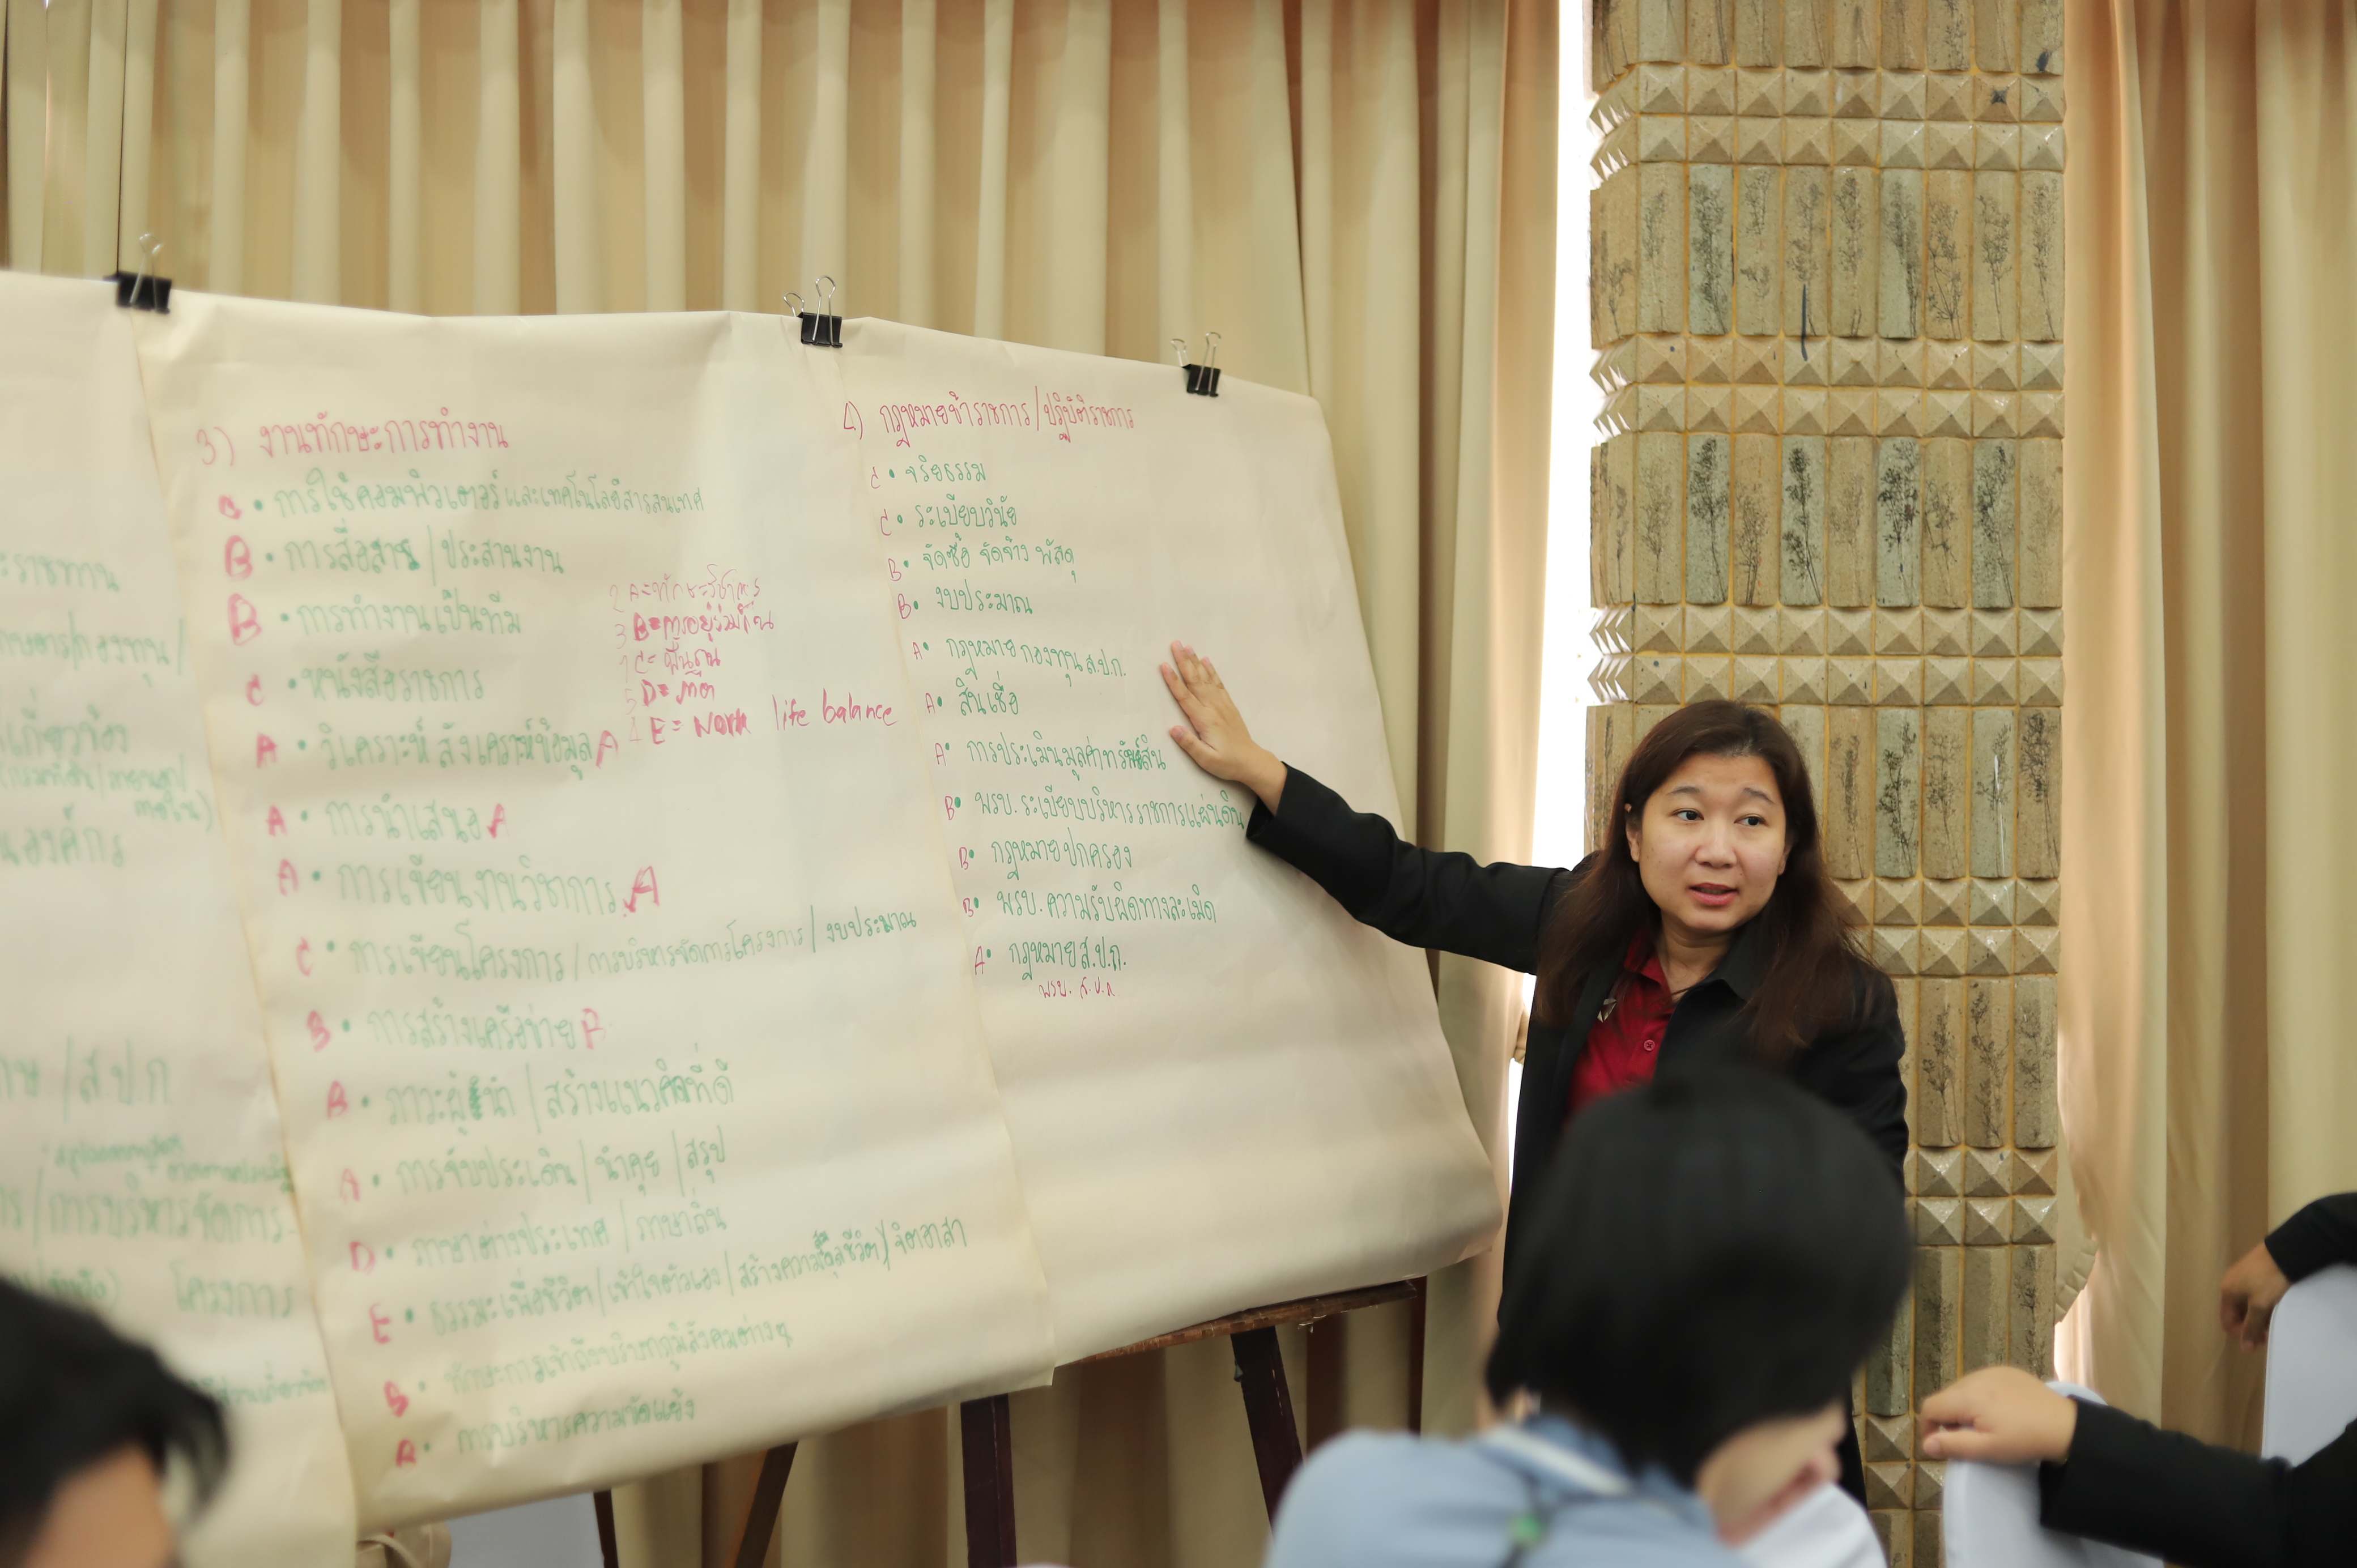 ะราชทาน
กองทุน/
เกี่ยวข้อง
องค์กร
/ส.ป.ก
/การบริหารจัดการ
โครงการ
3) งานทักษะการทำงาน
C • การใช้คอมพิวเตอร์และเทคโนโลยีสารสนเทศ
B • การสื่อสาร/ประสานงาน
B • การทำงานเป็นทีม
C • หนังสือราชการ
A • วิเคราะห์ สังเคราะห์ข้อมูล A
A • การนำเสนอ A
A • การเขียนงานวิชาการ A
C • การเขียนโครงการ/การบริหารจัดการโครงการ/งบประมาณ
B • การสร้างเครือข่าย B
A • ภาวะผู้นำ/สร้างแนวคิดที่ดี
A • การจับประเด็น/นำคุย/สรุป
D • ภาษาต่างประเทศ/ภาษาถิ่น
E • ธรรมะเพื่อชีวิต/เข้าใจตัวเอง/สร้างความสุขชีวิต/จิตอาสา
B • ทักษะการเข้าถึงบริบทภูมิสังคมต่างๆ
A • การบริหารความขัดแย้ง
2 A = ทักษะวิชาการ
3 B = การอยู่ร่วมกัน
1 C = พื้นฐาน
5 D =
4 E = Work life balance
4) กฎหมายข้าราชการ/ปฏิบัติราชการ
C • จริยธรรม
C • ระเบียบวินัย
B • จัดซื้อ จัดจ้าง พัสดุ
B • งบประมาณ
A • กฎหมายกองทุน ส.ป.ก.
A • สินเชื่อ
A • การประเมินมูลค่าทรัพย์สิน
B • พรบ. ระเบียบบริหารราชการแผ่นดิน
B • กฎหมายปกครอง
B • พรบ. ความรับผิดทางละเมิด
A • กฎหมาย ส.ป.ก.
พรบ. ส.ป.ก